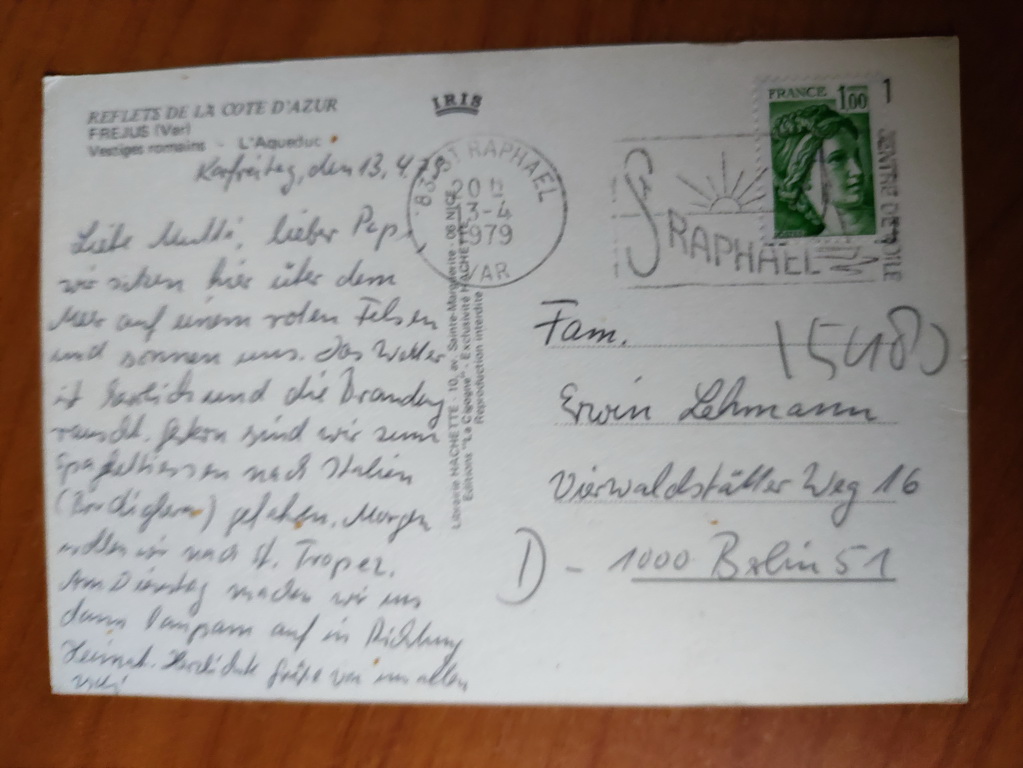 REFLETS DE LA COTE D'AZUR
FREJUS (Var)
Vestiges romains - L'Aqueduc
IRIS
Karfreitag, den 13.4.79
Liebe Mutti, lieber Papi,
wir sitzen hier über dem
Meer auf einem roten Felsen
und sonnen uns. Das Wetter
ist herrlich und die Brandung
rauscht. Gestern sind wir zum
Spaghettiessen nach Italien
(Bordighera) gefahren. Morgen
wollen wir nach St. Tropez.
Am Dienstag machen wir uns
dann langsam auf in Richtung
Heimat. Herzliche Grüße von uns allen
83 ST RAPHAEL
20 H
13-4
1979
VAR
Librairie HACHETTE - 10, av. Sainte-Marguerite - 06 NICE
Editions "La Cigogne" - Exclusivité HACHETTE
Reproduction interdite
ST RAPHAEL
FRANCE 1,00
1
Fam.
15480
Erwin Lehmann
Vierwaldstätter Weg 16
D - 1000 Berlin 51